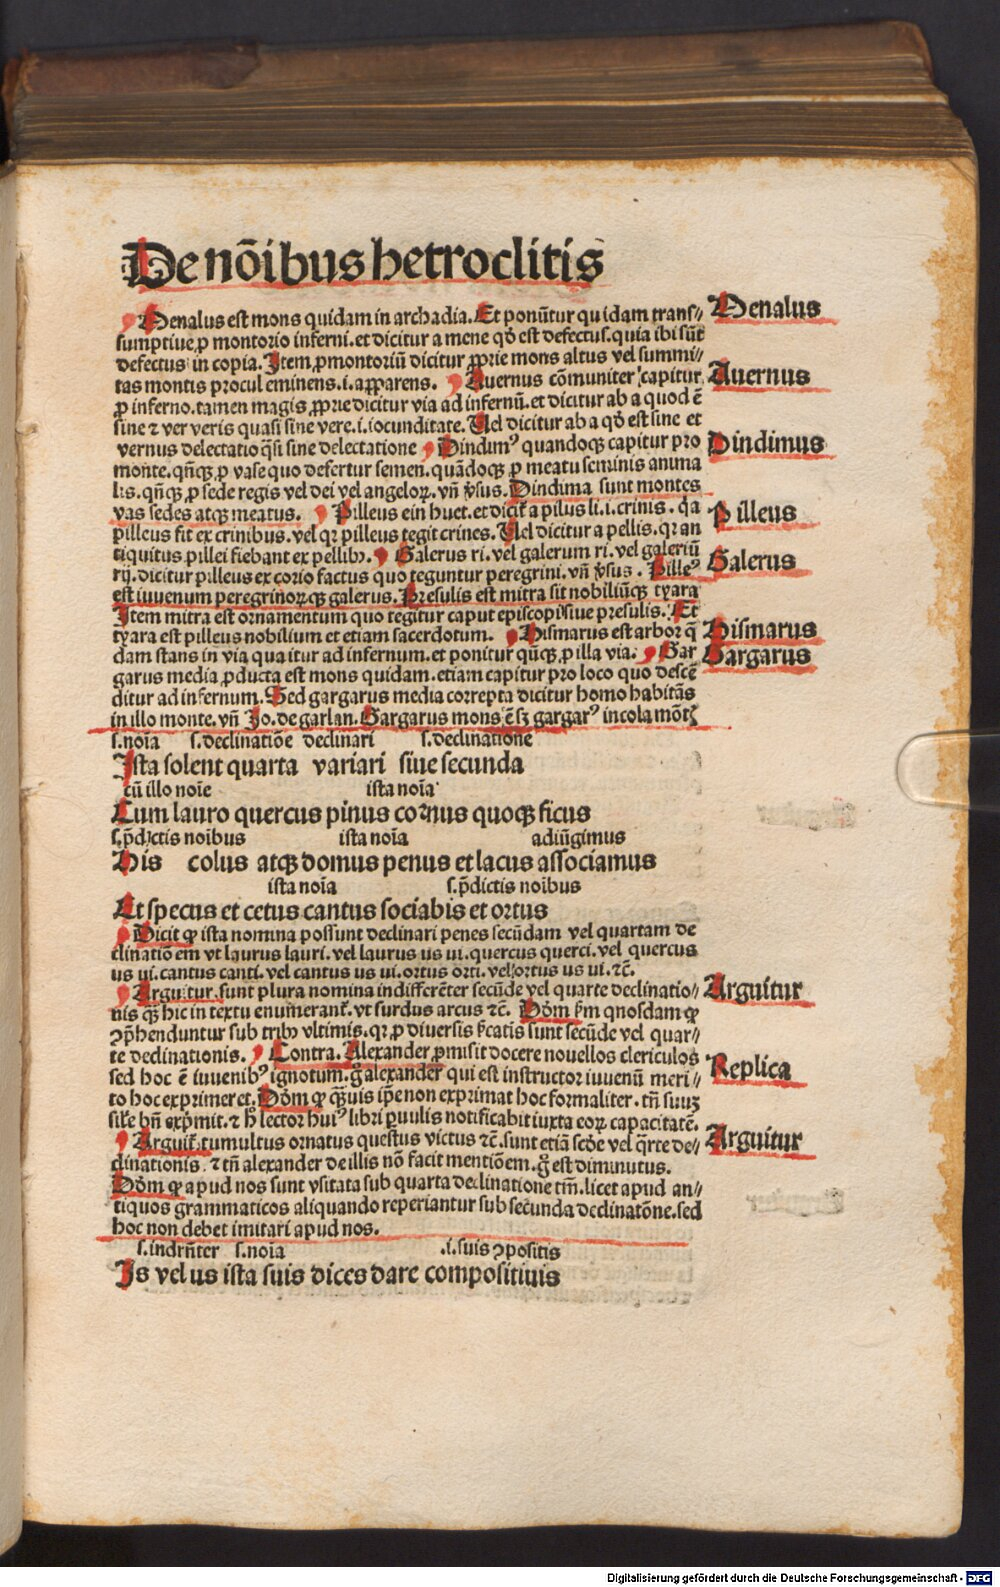 De nōibus hetroclitis
Menalus est mons quidam in archadia. Et ponūtur quidam trans⸗
sumptiue ꝓ montorio inferni. et dicitur a mene qđ est defectus. quia ibi sūt
defectus in copia. Item ꝓmontoriū dicitur ꝓprie mons altus vel summi⸗
tas montis procul eminens .i. apparens. Auernus cōmuniter capitur
ꝓ inferno. tamen magis ꝓprie dicitur via ad infernū. et dicitur ab a quod ē
sine ⁊ ver veris quasi sine vere .i. iocunditate. Uel dicitur ab a qđ est sine et
vernus delectatio q̄si sine delectatione Dindimꝰ quandoqꝫ capitur pro
monte. qn̄qꝫ ꝓ vase quo defertur semen. quādoqꝫ ꝓ meatu seminis anima
lis. qn̄qꝫ ꝓ sede regis vel dei vel angeloꝝ. vn̄ v̄sus. Dindima sunt montes
vas sedes atqꝫ meatus. Pilleus ein huet. et dicit̃ a pilus li .i. crinis. q̇a
pilleus fit ex crinibus. vel qꝛ pilleus tegit crines. Uel dicitur a pellis. qꝛ an
tiquitus pillei fiebant ex pellibꝫ. Galerus ri. vel galerum ri. vel galeriū
rij. dicitur pilleus ex corio factus quo teguntur peregrini. vn̄ v̄sus. Pilleꝰ
est iuuenum peregrinoꝝqꝫ galerus. Presulis est mitra sit nobiliūqꝫ tyara
Item mitra est ornamentum quo tegitur caput episcopi siue presulis. Et
tyara est pilleus nobilium et etiam sacerdotum. Bismarus est arbor q̄
dam stans in via qua itur ad infernum. et ponitur qn̄qꝫ ꝓ illa via. Gar
garus media ꝓducta est mons quidam. etiam capitur pro loco quo descē
ditur ad infernum. Sed gargarus media correpta dicitur homo habitās
in illo monte. vn̄ Jo. de garlan. Gargarus mons ē sꝫ gargarꝰ incola mōtꝭ
s. noīa s. declinatiōe declinari s. declinatione
Ista solent quarta variari siue secunda
cū illo noīe ista noīa
Cum lauro quercus pinus cornus quoqꝫ ficus
s. p̄dictis noībus ista noīa adiūgimus
His colus atqꝫ domus penus et lacus associamus
ista noīa s. p̄dictis noībus
Et specus et cetus cantus sociabis et ortus
Dicit ꝙ ista nomina possunt declinari penes secūdam vel quartam de
clinationem vt laurus lauri. vel laurus us ui. quercus querci. vel quercus
us ui. cantus canti. vel cantus us ui. ortus orti. vel ortus us ui. ⁊c̄.
Arguitur. sunt plura nomina indifferēter secūde vel quarte declinatio⸗
nis q̄ hic in textu enumerant̃. vt surdus arcus ⁊c̄. Dōm
ꝯp̄henduntur sub tribꝰ vltimis. qꝛ ꝓ diuersis sunt secūde vel quar⸗
te declinationis. Contra. Alexander ꝓmisit docere nouellos clericulos
sed hoc ē iuuenibꝰ ignotum. alexander qui est instructor iuuenū meri⸗
to hoc exprimeret. Dōm ꝙ q̄uis ip̄e non exprimat hoc formaliter. tn̄
bn̄ exp̄mit. ⁊ lector huiꝰ libri ꝑuulis notificabit iuxta eoꝝ capacitatē.
Arguit̃. tumultus ornatus questus victus ⁊c̄. sunt etiā vel de⸗
clinationis. ⁊ tn̄ alexander de illis nō facit mentiōem. est diminutus.
Dōm ꝙ apud nos sunt vsitata sub quarta declinatione tm̄. licet apud an⸗
tiquos grammaticos aliquando reperiantur sub secunda declinatōne. sed
hoc non debet imitari apud nos.
s. indrn̄ter s. noīa .i. suis ꝯpositis
Is vel us ista suis dices dare compositiuis
Menalus
Auernus
Dindimus
Pilleus
Galerus
Bismarus
Gargarus
Arguitur
Replica
Arguitur
Digitalisierung gefördert durch die Deutsche Forschungsgemeinschaft - DFG